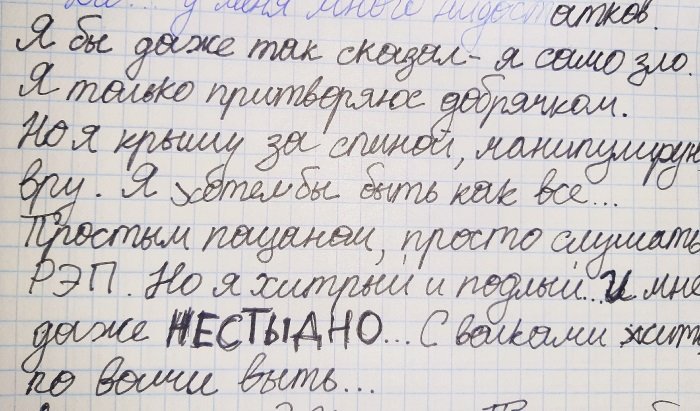 ... у меня много нидостатков.
Я бы даже так сказал - я само зло.
Я только притворяюс добрячком.
Но я крышу за спиной, манипулирую
вру. Я хотел бы быть как все...
Простым пацаном, просто слушать
РЭП. Но я хитрый и подлый... и мне
даже НЕСТЫДНО... С волками жить
по волчи выть...